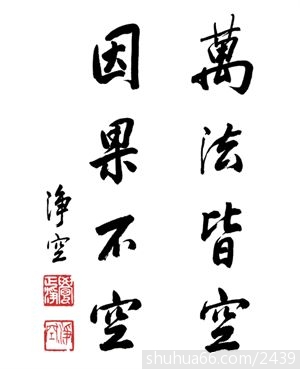 萬法皆空
因果不空
淨空
shuhua66.com/2439